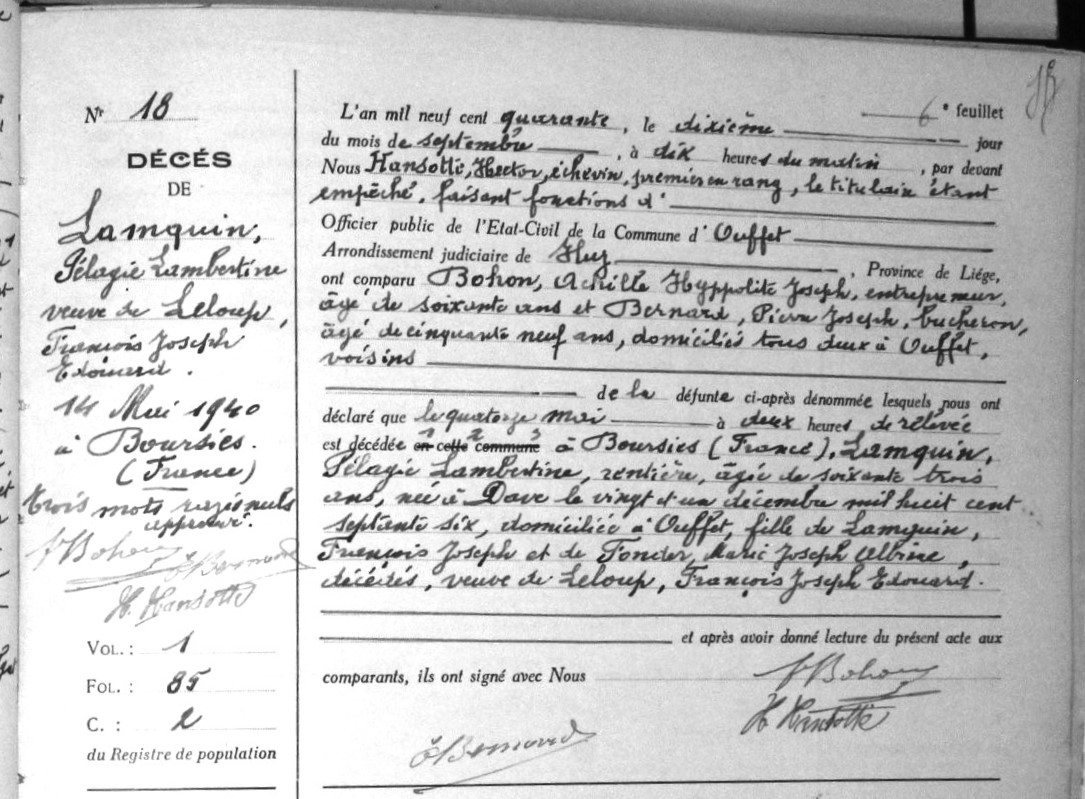 Nr 18
DÉCÉS
DE
Lamquin,
Pélagie Lambertine
veuve de Leloup,
François Joseph
Edouard.
14 Mai 1940
à Boursies.
(France)
trois mots rayés nuls
approuvé.
Bohon
Bernard
H. Hansotte
VOL. : 1
FOL. : 85
C. : 2
du Registre de population
6e feuillet
L'an mil neuf cent quarante, le dixième jour
du mois de septembre, à dix heures du matin, par devant
Nous Hansotte, Hector, échevin, premier en rang, le titulaire étant
empêché, faisant fonctions d'
Officier public de l'Etat-Civil de la Commune d' Ouffet
Arrondissement judiciaire de Huy, Province de Liége,
ont comparu Bohon, Achille Hyppolite Joseph, entrepreneur,
âgé de soixante ans et Bernard, Pierre Joseph, bucheron,
âgé de cinquante neuf ans, domiciliés tous deux à Ouffet,
voisins
de la défunte ci-après dénommée lesquels nous ont
déclaré que le quatorze mai à deux heures de relevée
est décédée en cette commune 1 2 3 à Boursies (France), Lamquin,
Pélagie Lambertine, rentière, âgée de soixante trois
ans, née à Dave le vingt et un décembre mil huit cent
septante six, domiciliée à Ouffet, fille de Lamquin,
François Joseph et de Tonder, Marie Joseph Albine,
décédés, veuve de Leloup, François Joseph Edouard.
et après avoir donné lecture du présent acte aux
comparants, ils ont signé avec Nous
Bohon
H Hansotte
Bernard